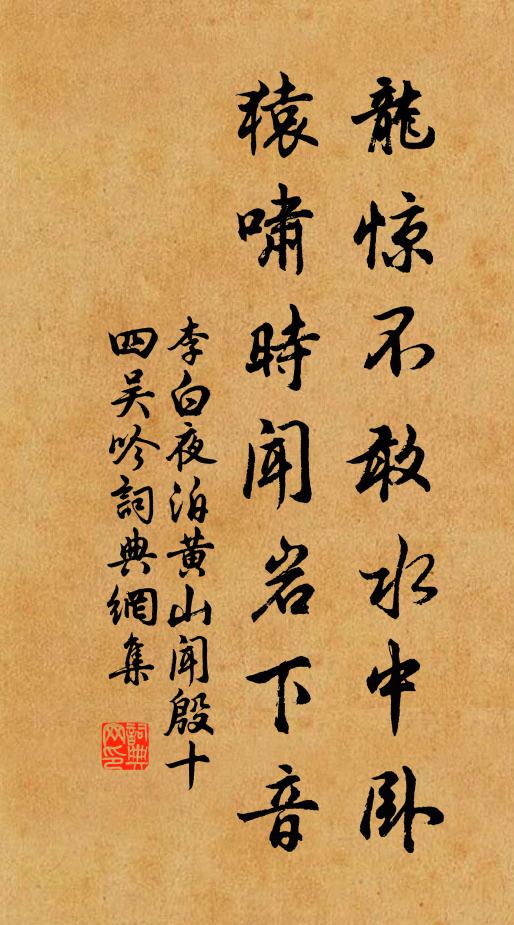 龍惊不敢水中卧
猿啸時闻岩下音
李白夜泊黄山闻殷十
四吴吟詞典網集
詞典
网印